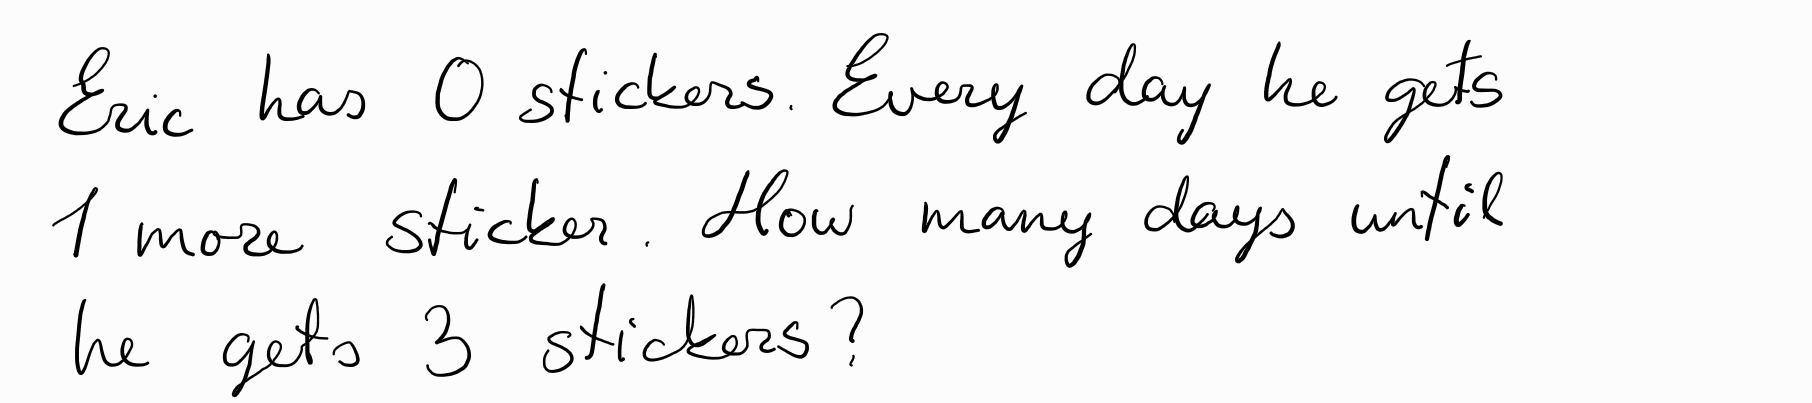 Eric has 0 stickers. Every day he gets
1 more sticker. How many days until
he gets 3 stickers?